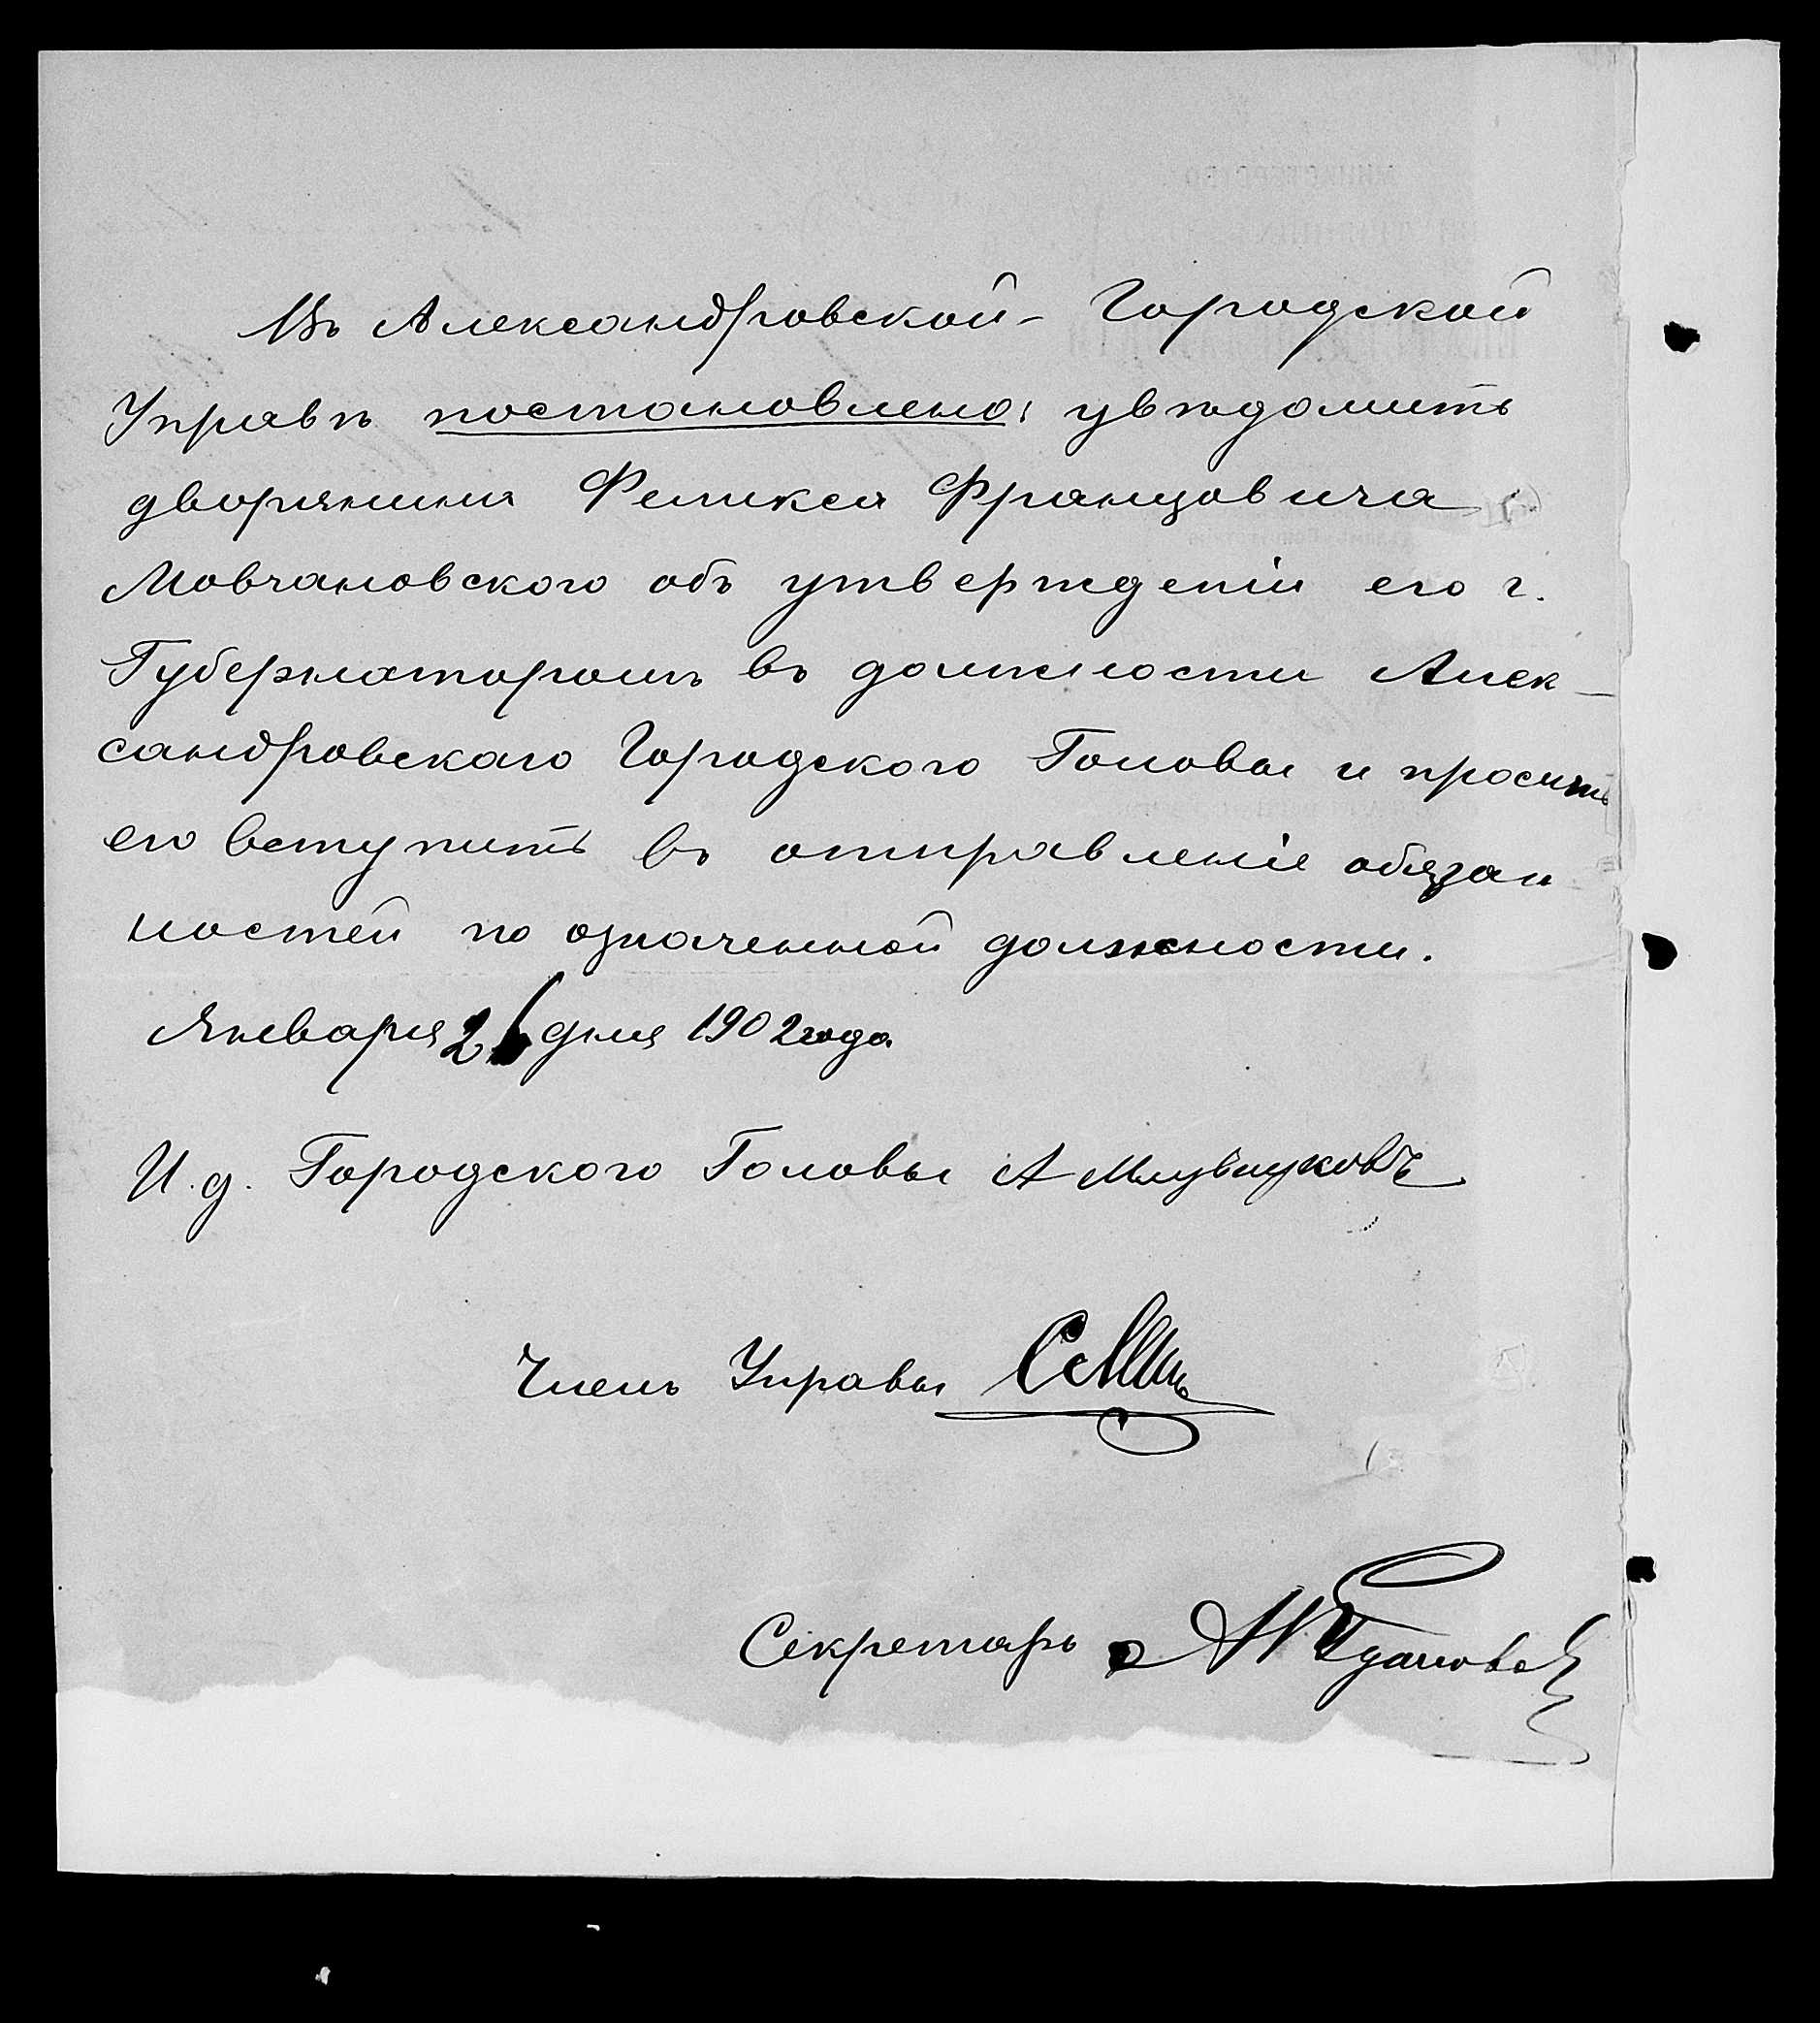 Въ Александровской Городской
Управѣ постановлено: увѣдомить
дворянина Феликса Францовича
Мовчановского объ утвержденіи его г.
Губернаторомъ въ должности Алек-
сандровскаго Городского Головы и просить
его вступить въ отправленіе обязан
ностей по означенной должности.
Января 26 дня 1902 года
И. д. Городского Головы А
Членъ Управы
Секретарь